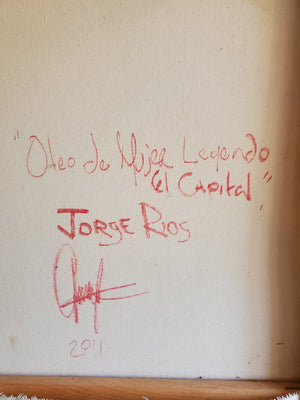 "Oleo de Mujer Leyendo
El Capital"
Jorge Rios
2011